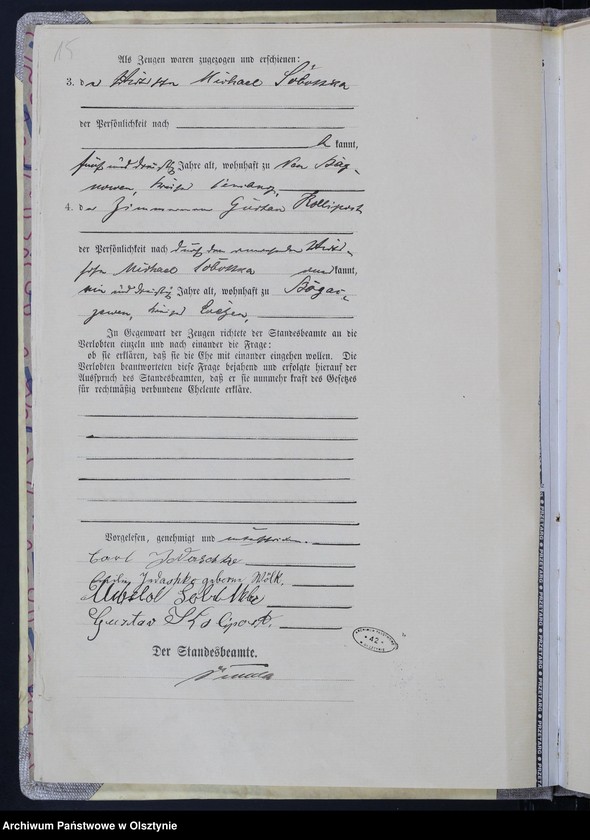 15
Als Zeugen waren zugezogen und erschienen:
3. der Michael Sobottka
der Persönlichkeit nach
kannt,
fünf und dreißig Jahre alt, wohnhaft zu Neu Bag-
nowen, Kreises Sensburg,
4. der Zimmermann Gustav
der Persönlichkeit nach durch den
Michael Sobottka kannt,
ein und dreißig Jahre alt, wohnhaft zu
Kreises Lötzen,
In Gegenwart der Zeugen richtete der Standesbeamte an die
Verlobten einzeln und nach einander die Frage:
ob sie erklären, daß sie die Ehe mit einander eingehen wollen. Die
Verlobten beantworteten diese Frage bejahend und erfolgte hierauf der
Ausspruch des Standesbeamten, daß er sie nunmehr kraft des Gesetzes
für rechtmäßig verbundene Eheleute erkläre.
Vorgelesen, genehmigt und unterschrieben.
Carl
geborne
Gustav
Der Standesbeamte.
42
PRZETARG PRZETARG PRZETARG PRZETARG PRZETARG PRZETARG
Archiwum Państwowe w Olsztynie